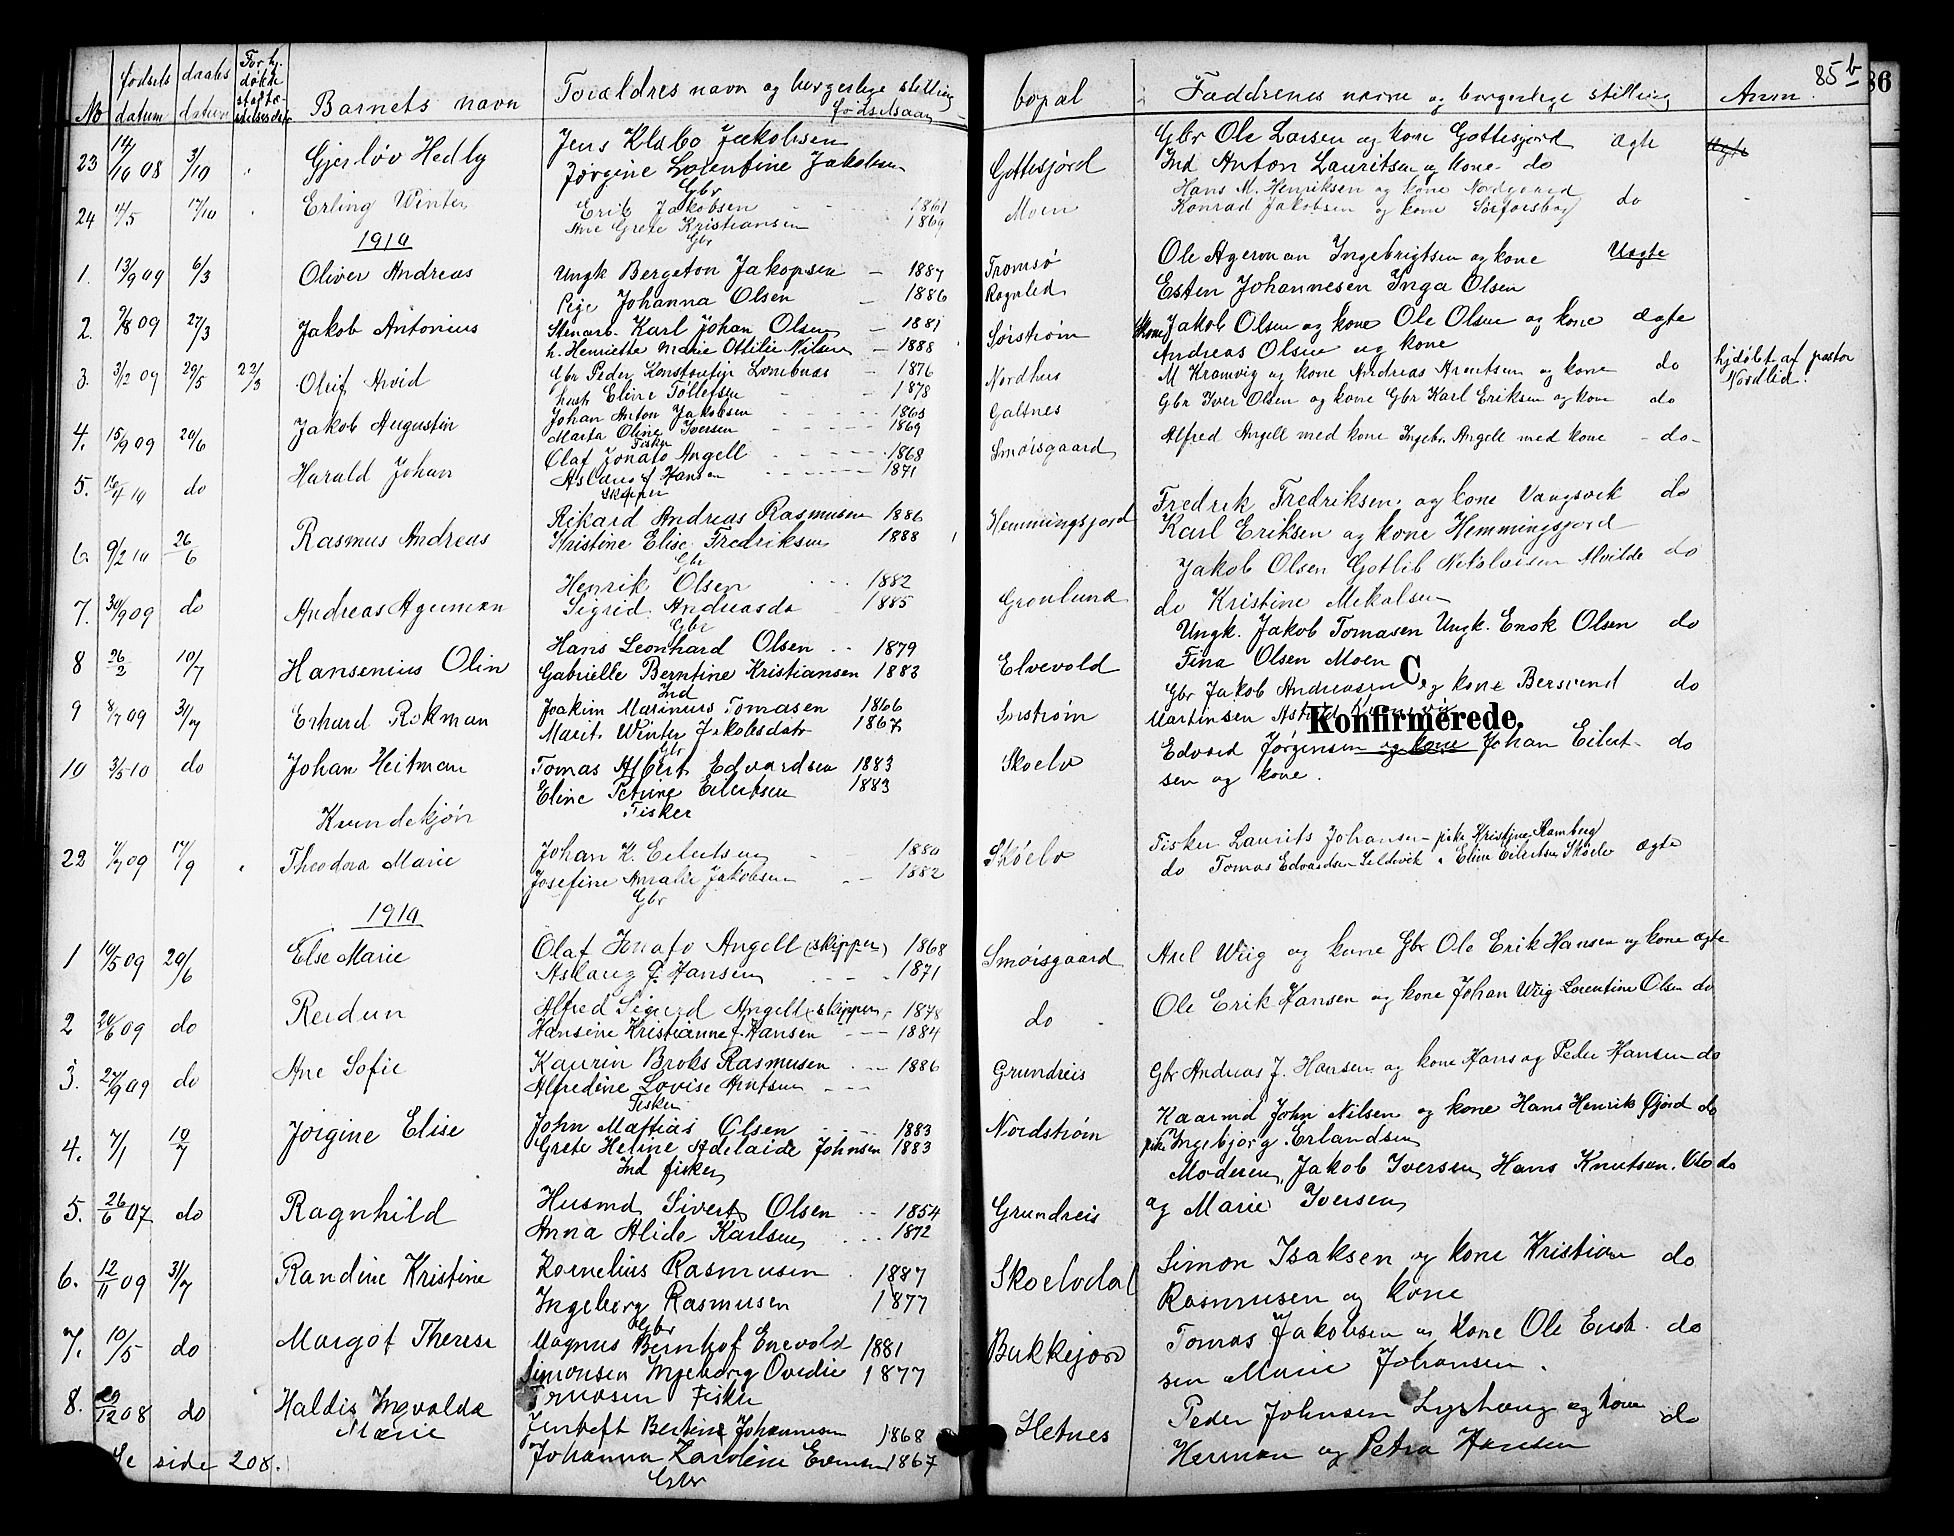 85 b
86
No fødsels datum daabs datum For hj. døbte stadfæ- stelses dag Barnets navn Forældres navn og borgerlige stilling fødselsaar bopæl Faddrenes navne og borgerlige stilling Anm
23 14/10 08 3/10 Gjerløv Hedly Jens Klæbo Jakobsen Gottesjord Gbr Ole Larsen og kone Gottesjord ægte
Jørgine Lorentine Jakobsen Gbr Ind Anton Lauritsen og kone do
24 4/5 17/10 Erling Winter Erik Jakobsen 1861 Moen Hans M. Henriksen og kone Nordgaard do
Ane Grete Kristiansen 1869 Gbr Konrad Jakobsen og kone Sørforsbag
1910
1. 13/9 09 6/3 Oliver Andreas Ungk Bergeton Jakopsen – 1887 Tromsø Ole Ageroman Ingebrigtsen og kone Uægte
Pige Johanna Olsen – 1886 Rognled Esten Johannesen Inga Olsen
2. 9/8 09 27/3 Jakob Antonius Stenarb. Karl Johan Olsen – 1881 Sørstrøm Jakob Olsen og kone Ole Olsen og kone ægte
h. Henriette Marie Ottilie Nilsen – 1888 Andreas Olsen og kone
3. 3/12 09 29/5 22/3 Oleif Arvid Gbr Peder Konstantin Lonebnæs – 1876 Nordhus M Kramvig og kone Andreas Arentsen og kone do hjdøbt af pastor Nordlid.
hust Eline Tollefsen – 1878
4. 15/9 09 20/6 Jakob Augustin Johan Anton Jakobsen 1865 Galtnes Gbr Iver Olsen og kone Gbr Karl Eriksen og kone do
Marta Oline Iversen 1869 Fisker
5. 16/4 10 do Harald Johan Olaf Jonato Angell 1868 Smørsgaard Alfred Angell med kone Ingebr. Angell med kone – do –
Aslaug J Hansen 1871 Skipper
6. 9/2 10 26/6 Rasmus Andreas Rikard Andreas Rasmusen 1886 Hemmingsjord Fredrik Fredriksen og kone Vangsvik do
Kristine Elise Fredriksen 1888 Gbr Karl Eriksen og kone Hemmingsjord
7. 30/9 09 do Andreas Ageroman Henrik Olsen 1882 Grønlund Jakob Olsen Gotlib Nikolaisen Alvilde do
Sigrid Andreasda 1885 Gbr do Kristine Mikalsen
8 26/2 10/7 Hansenius Olin Hans Leonhard Olsen 1879 Elvevold Ungk. Jakob Tomasen Ungk. Enok Olsen do
Gabrielle Berntine Kristiansen 1883 Ind Fina Olsen Moen
C.
Konfirmerede.
9 8/7 09 31/7 Erhard Rikman Joakim Marinius Tomasen 1866 Sørstrøm Gbr Jakob Andreasen og kone Bersvend do
Marit Winter Jakobsdatr 1867 Gbr Martinsen
10 3/5 10 do Johan Heitman Tomas Albert Edvardsen 1883 Skoelv Edvard Jørgensen og kone Johan Eilert- do
Eline Petrine Eilertsen 1883 Fisker sen og kone.
Kvindekjøn
22 7/7 09 17/9 Theodora Marie Johan K. Eilertsen 1880 Skøelv Fisker Laurits Johansen pike Kristine Ramberg ægte
Josefine Amalie Jakobsen 1882 Gbr do Tomas Edvardsen Seldevik Eline Eilertsen Skøelv
1910
1 10/5 09 20/6 Else Marie Olaf Jonato Angell (skipper) 1868 Smørsgaard Axel Wiig og kone Gbr Ole Erik Hansen og kone ægte
Aslaug J. Hansen 1871
2 20/6 09 do Reidun Alfred Sigurd Angell (skipper) 1878 do Ole Erik Hansen og kone Johan Wiig Lorentine Olsen do
Hansine Kristianne J. Hansen 1884
3. 27/9 09 do Ane Sofie Kaurin Broks Rasmusen 1886 Grundreis Gbr Andreas J. Hansen og kone Hans og Peder Hansen do
Alfredine Lovise Arntsen Fisker
4. 7/1 10/7 Jørgine Elise John Mattias Olsen 1883 Nordstrøm Kaarmd John Nilsen og kone Hans Henrik Gjord do
Grete Heline Adelaide Johnsen 1883 Ind fisker pike Ingebjørg Erlandsen
5. 26/6 07 do Ragnhild Husmd Sivert Olsen 1854 Grundreis Moderen, Jakob Iversen, Hans Knutsen do
Anna Alide Karlsen 1872 og Marie Iversen
6. 12/11 09 31/7 Randine Kristine Kornelius Rasmusen 1887 Skoelvdal Simon Isaksen og kone Kristian do
Ingeborg Rasmusen 1877 Gbr Rasmusen og kone
7. 10/5 do Margot Therese Magnus Bernhof Enevold 1881 Bukkejord Tomas Jakobsen og kone Ole Erik- do
Simonsen Ingeborg Ovidie 1877 sen Marie Johansen.
Tomasen Fisker
8. 29/12 08 do Haldis Ingvalda Marie Jentoft Bertines Johannesen 1868 Hetnes Peder Johnsen Lyshaug og kone do
Johanna Karoline Evensen 1867 Gbr Herman og Petra Hansen
Se side 208.